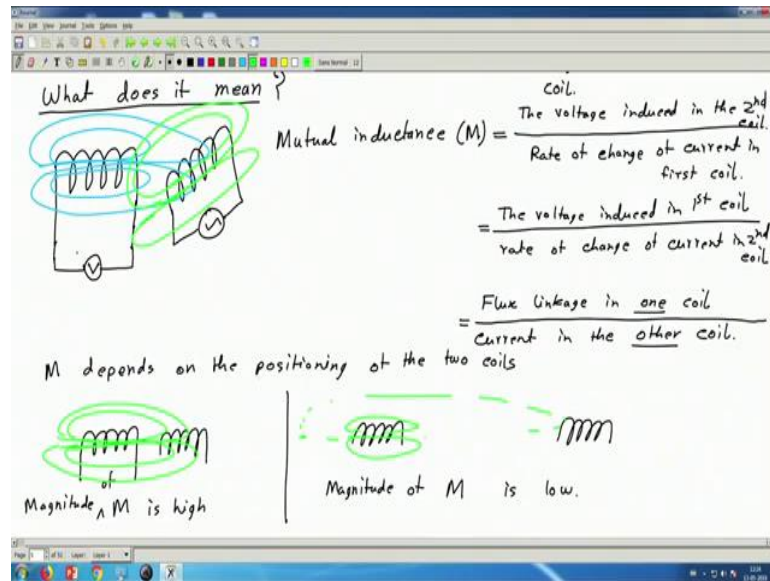 Journal
File Edit View Journal Tools Options Help
Sans Normal 12
What does it mean ?
coil.
Mutual inductance (M) = The voltage induced in the 2nd coil.
Rate of change of current in first coil.
= The voltage induced in 1st coil
rate of change of current in 2nd coil
= Flux linkage in one coil
current in the other coil.
V
M depends on the positioning of the two coils
Magnitude of M is high
Magnitude of M is low.
Page 5 of 51 Layer: Layer 1